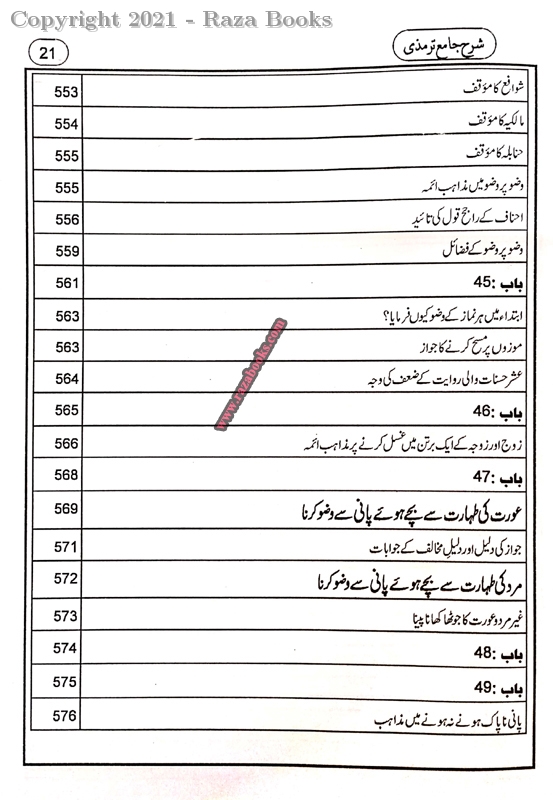 Copyright 2021 - Raza Books
21
شرح جامع ترمذی
شوافع کا مؤقف 553
مالکیہ کا مؤقف 554
حنابلہ کا مؤقف 555
وضو پر وضو میں مذاہب ائمہ 555
احناف کے راجح قول کی تائید 556
وضو پر وضو کے فضائل 559
باب :45 561
ابتداء میں ہر نماز کے وضو کیوں فرمایا؟ 563
موزوں پر مسح کرنے کا جواز 563
عشر حسنات والی روایت کے ضعف کی وجہ 564
باب :46 565
زوج اور زوجہ کے ایک برتن میں غسل کرنے پر مذاہب ائمہ 566
باب :47 568
عورت کی طہارت سے بچے ہوئے پانی سے وضو کرنا 569
جواز کی دلیل اور دلیل مخالف کے جوابات 571
مرد کی طہارت سے بچے ہوئے پانی سے وضو کرنا 572
غیر مرد و عورت کا جوٹھا کھانا پینا 573
باب :48 574
باب :49 575
پانی ناپاک ہونے نہ ہونے میں مذاہب 576
www.razabooks.com